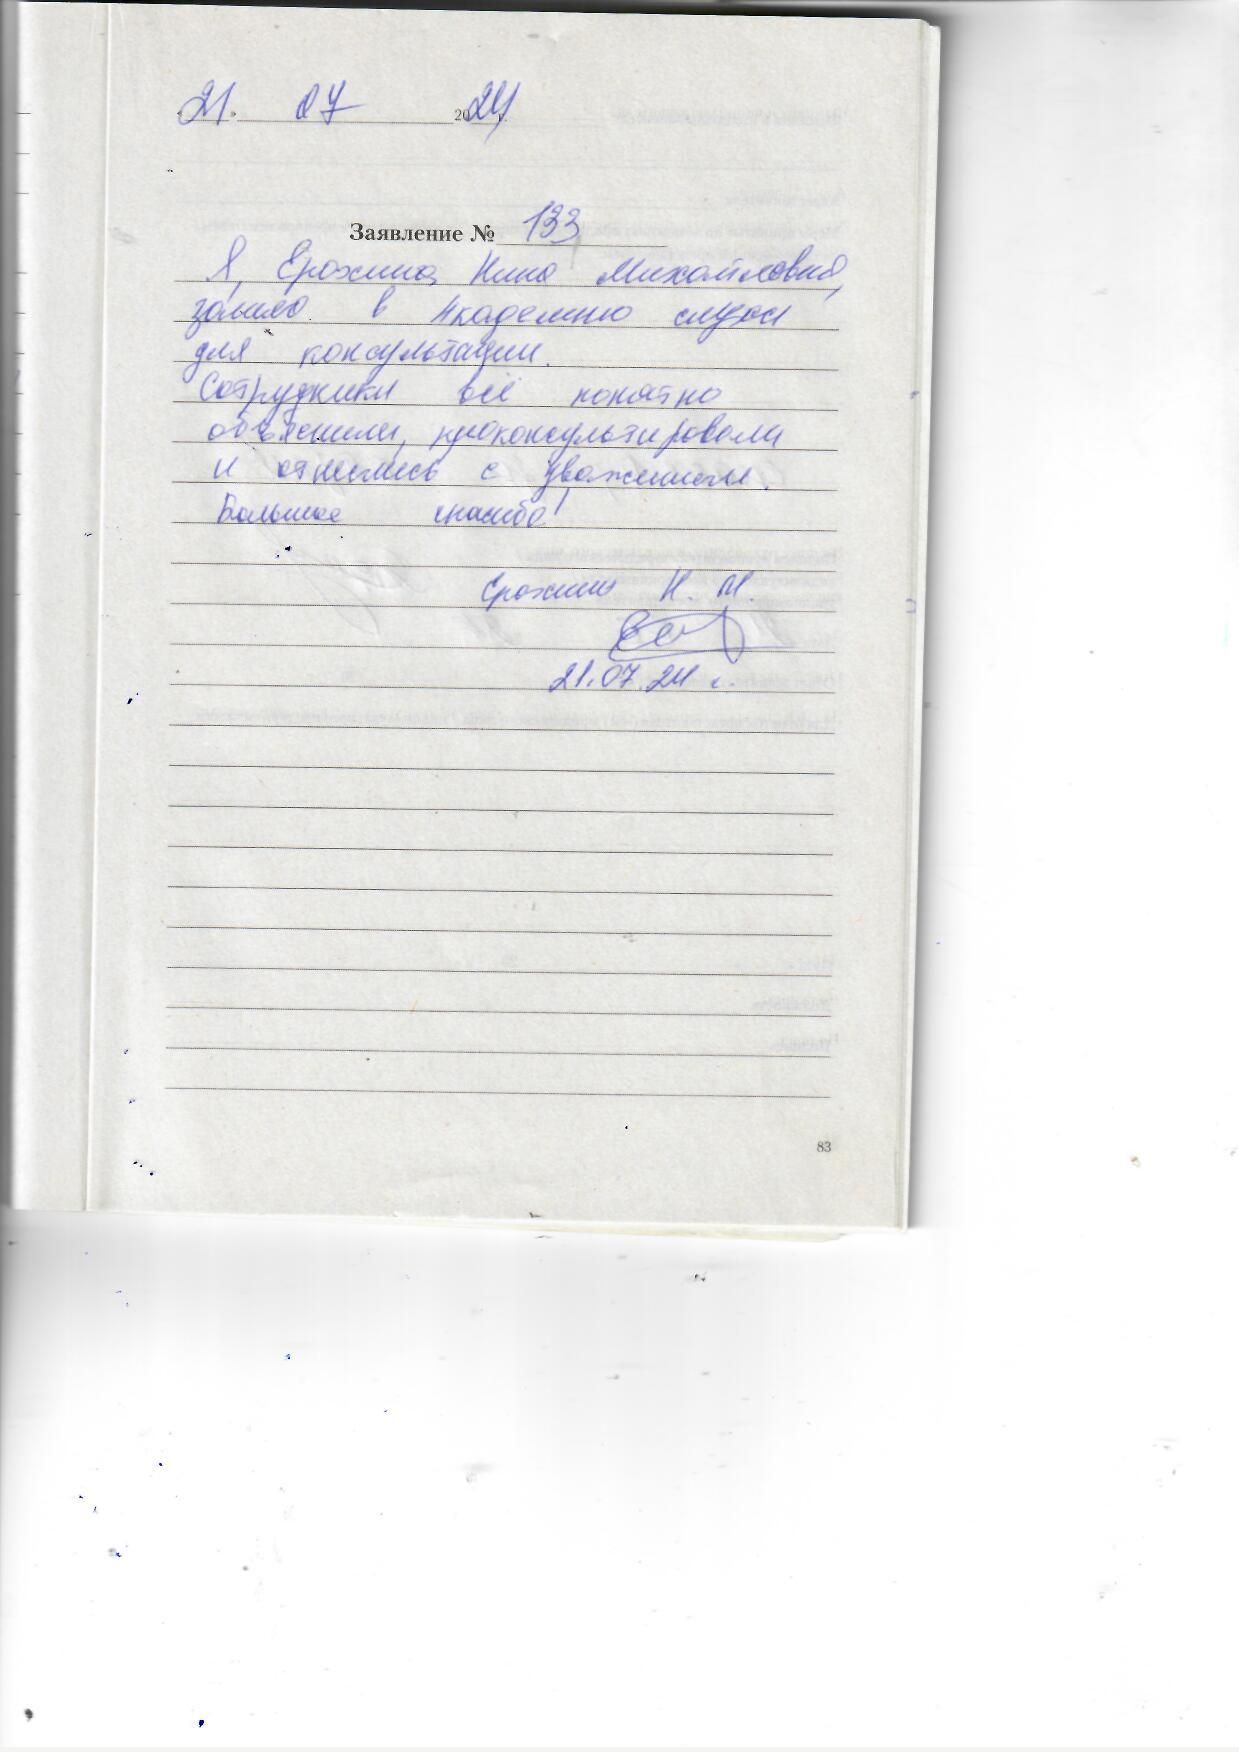 «21» 07 2024 г.
Заявление № 133
Я, Ерохина Нина Михайловна,
зашла в Академию слуха
для консультации.
Сотрудники всё понятно
объяснили, проконсультировали
и отнеслись с уважением.
Большое спасибо!
Ерохина Н. М.
21.07.24 г.
83